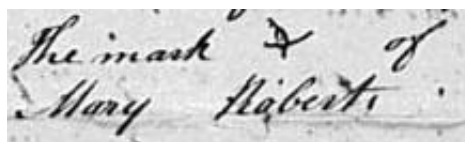 The mark X of
Mary Roberts